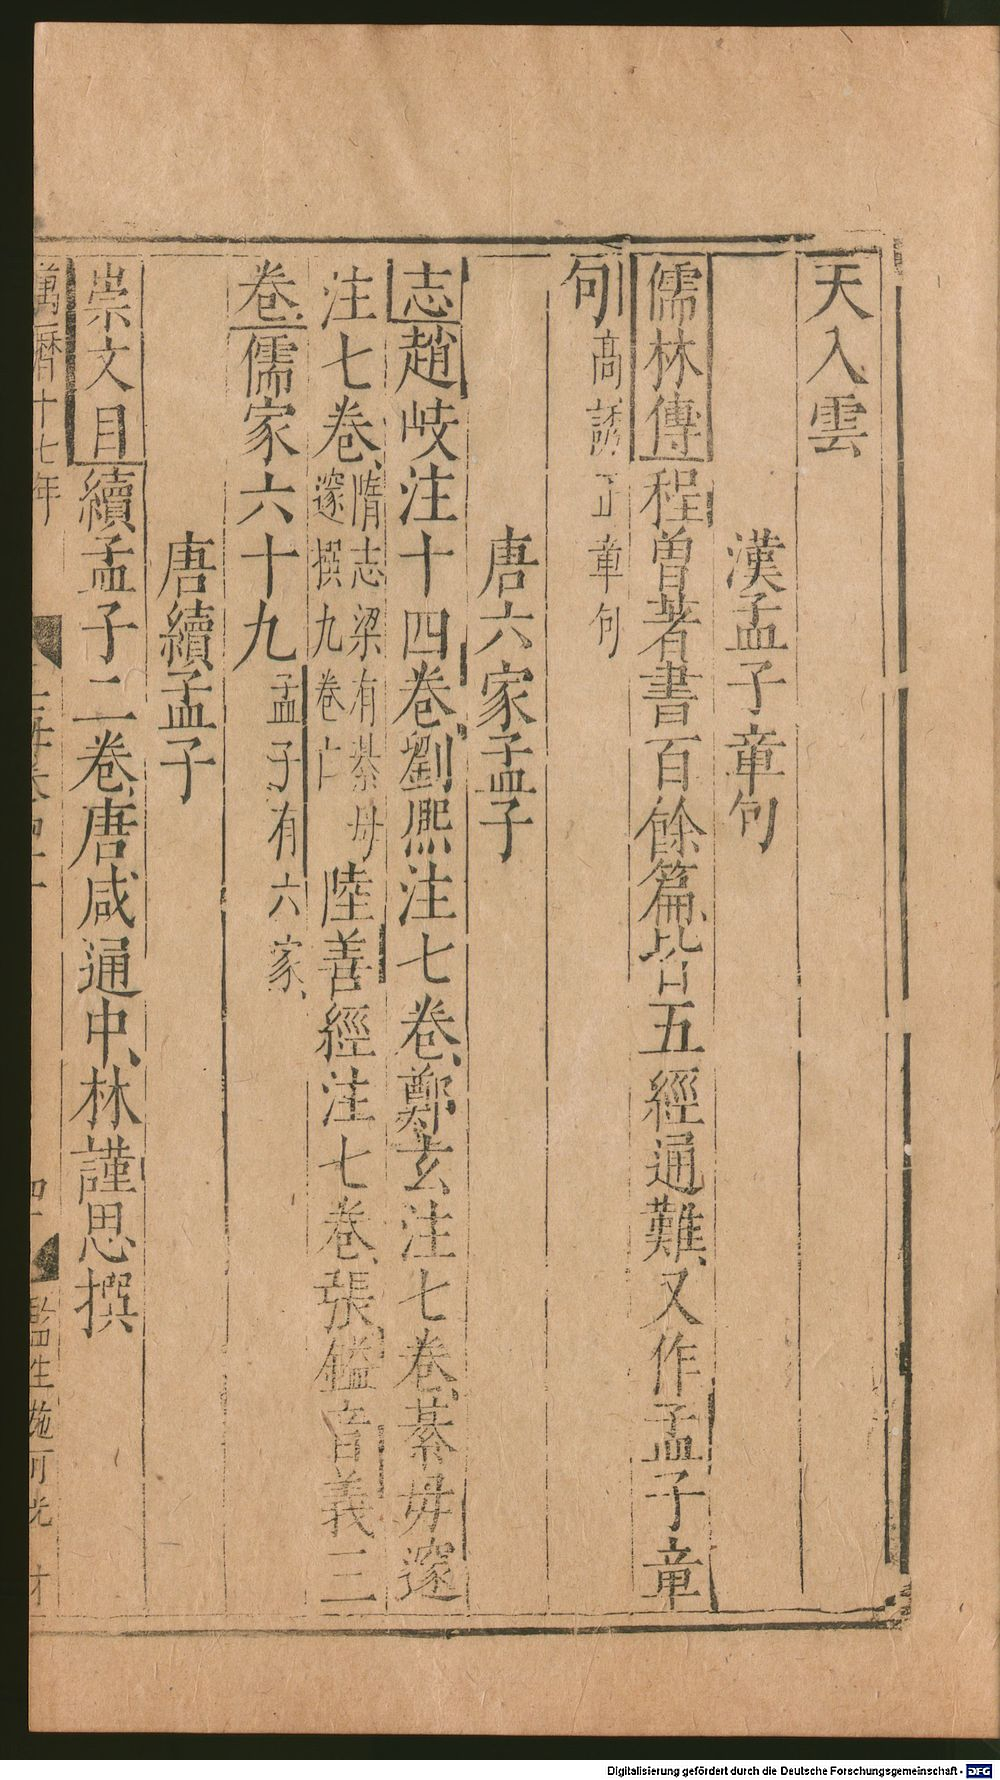 天入雲
漢孟子章句
儒林傳程曾著書百餘篇皆五經通難又作孟子章
句高誘正章句
唐六家孟子
志趙岐注十四卷劉熈注七卷鄭玄注七卷綦毋邃
注七卷隋志梁有綦毋邃撰九卷亡陸善經注七卷張鎰音義三
卷儒家六十九孟子有六家
唐續孟子
崇文目續孟子二卷唐咸通中林謹思撰
萬曆十七年 監生 光
Digitalisierung gefördert durch die Deutsche Forschungsgemeinschaft - DFG